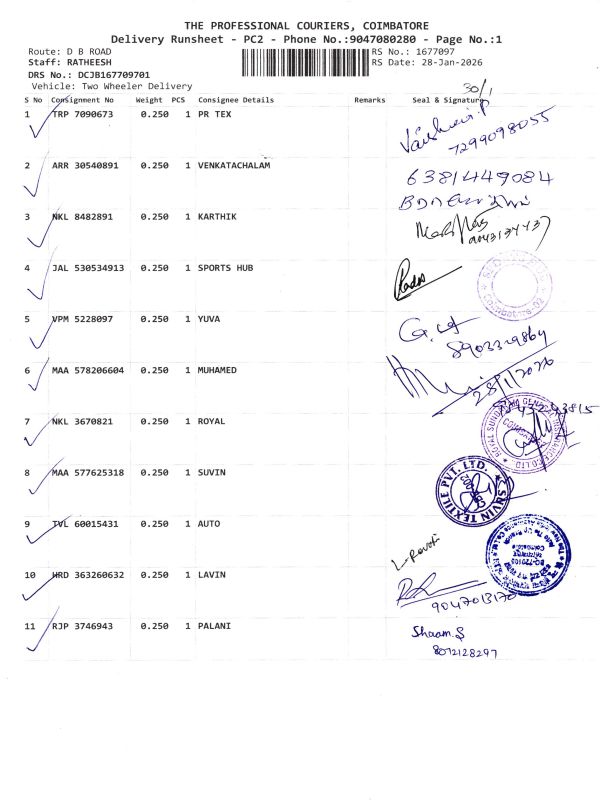 THE PROFESSIONAL COURIERS, COIMBATORE
Delivery Runsheet - PC2 - Phone No.:9047080280 - Page No.:1
Route: D B ROAD
RS No.: 1677097
Staff: RATHEESH
RS Date: 28-Jan-2026
DRS No.: DCJB167709701
Vehicle: Two Wheeler Delivery
30/1
S No Consignment No Weight PCS Consignee Details Remarks Seal & Signature
1 TRP 7090673 0.250 1 PR TEX
7299098055
2 ARR 30540891 0.250 1 VENKATACHALAM 6381449084
3 NKL 8482891 0.250 1 KARTHIK
4 JAL 530534913 0.250 1 SPORTS HUB
5 VPM 5228097 0.250 1 YUVA
6 MAA 578206604 0.250 1 MUHAMED
28/1/2026
7 NKL 3670821 0.250 1 ROYAL
8 MAA 577625318 0.250 1 SUVIN
9 TVL 60015431 0.250 1 AUTO
10 HRD 363260632 0.250 1 LAVIN
9047013170
11 RJP 3746943 0.250 1 PALANI Shaam.S
8072128297